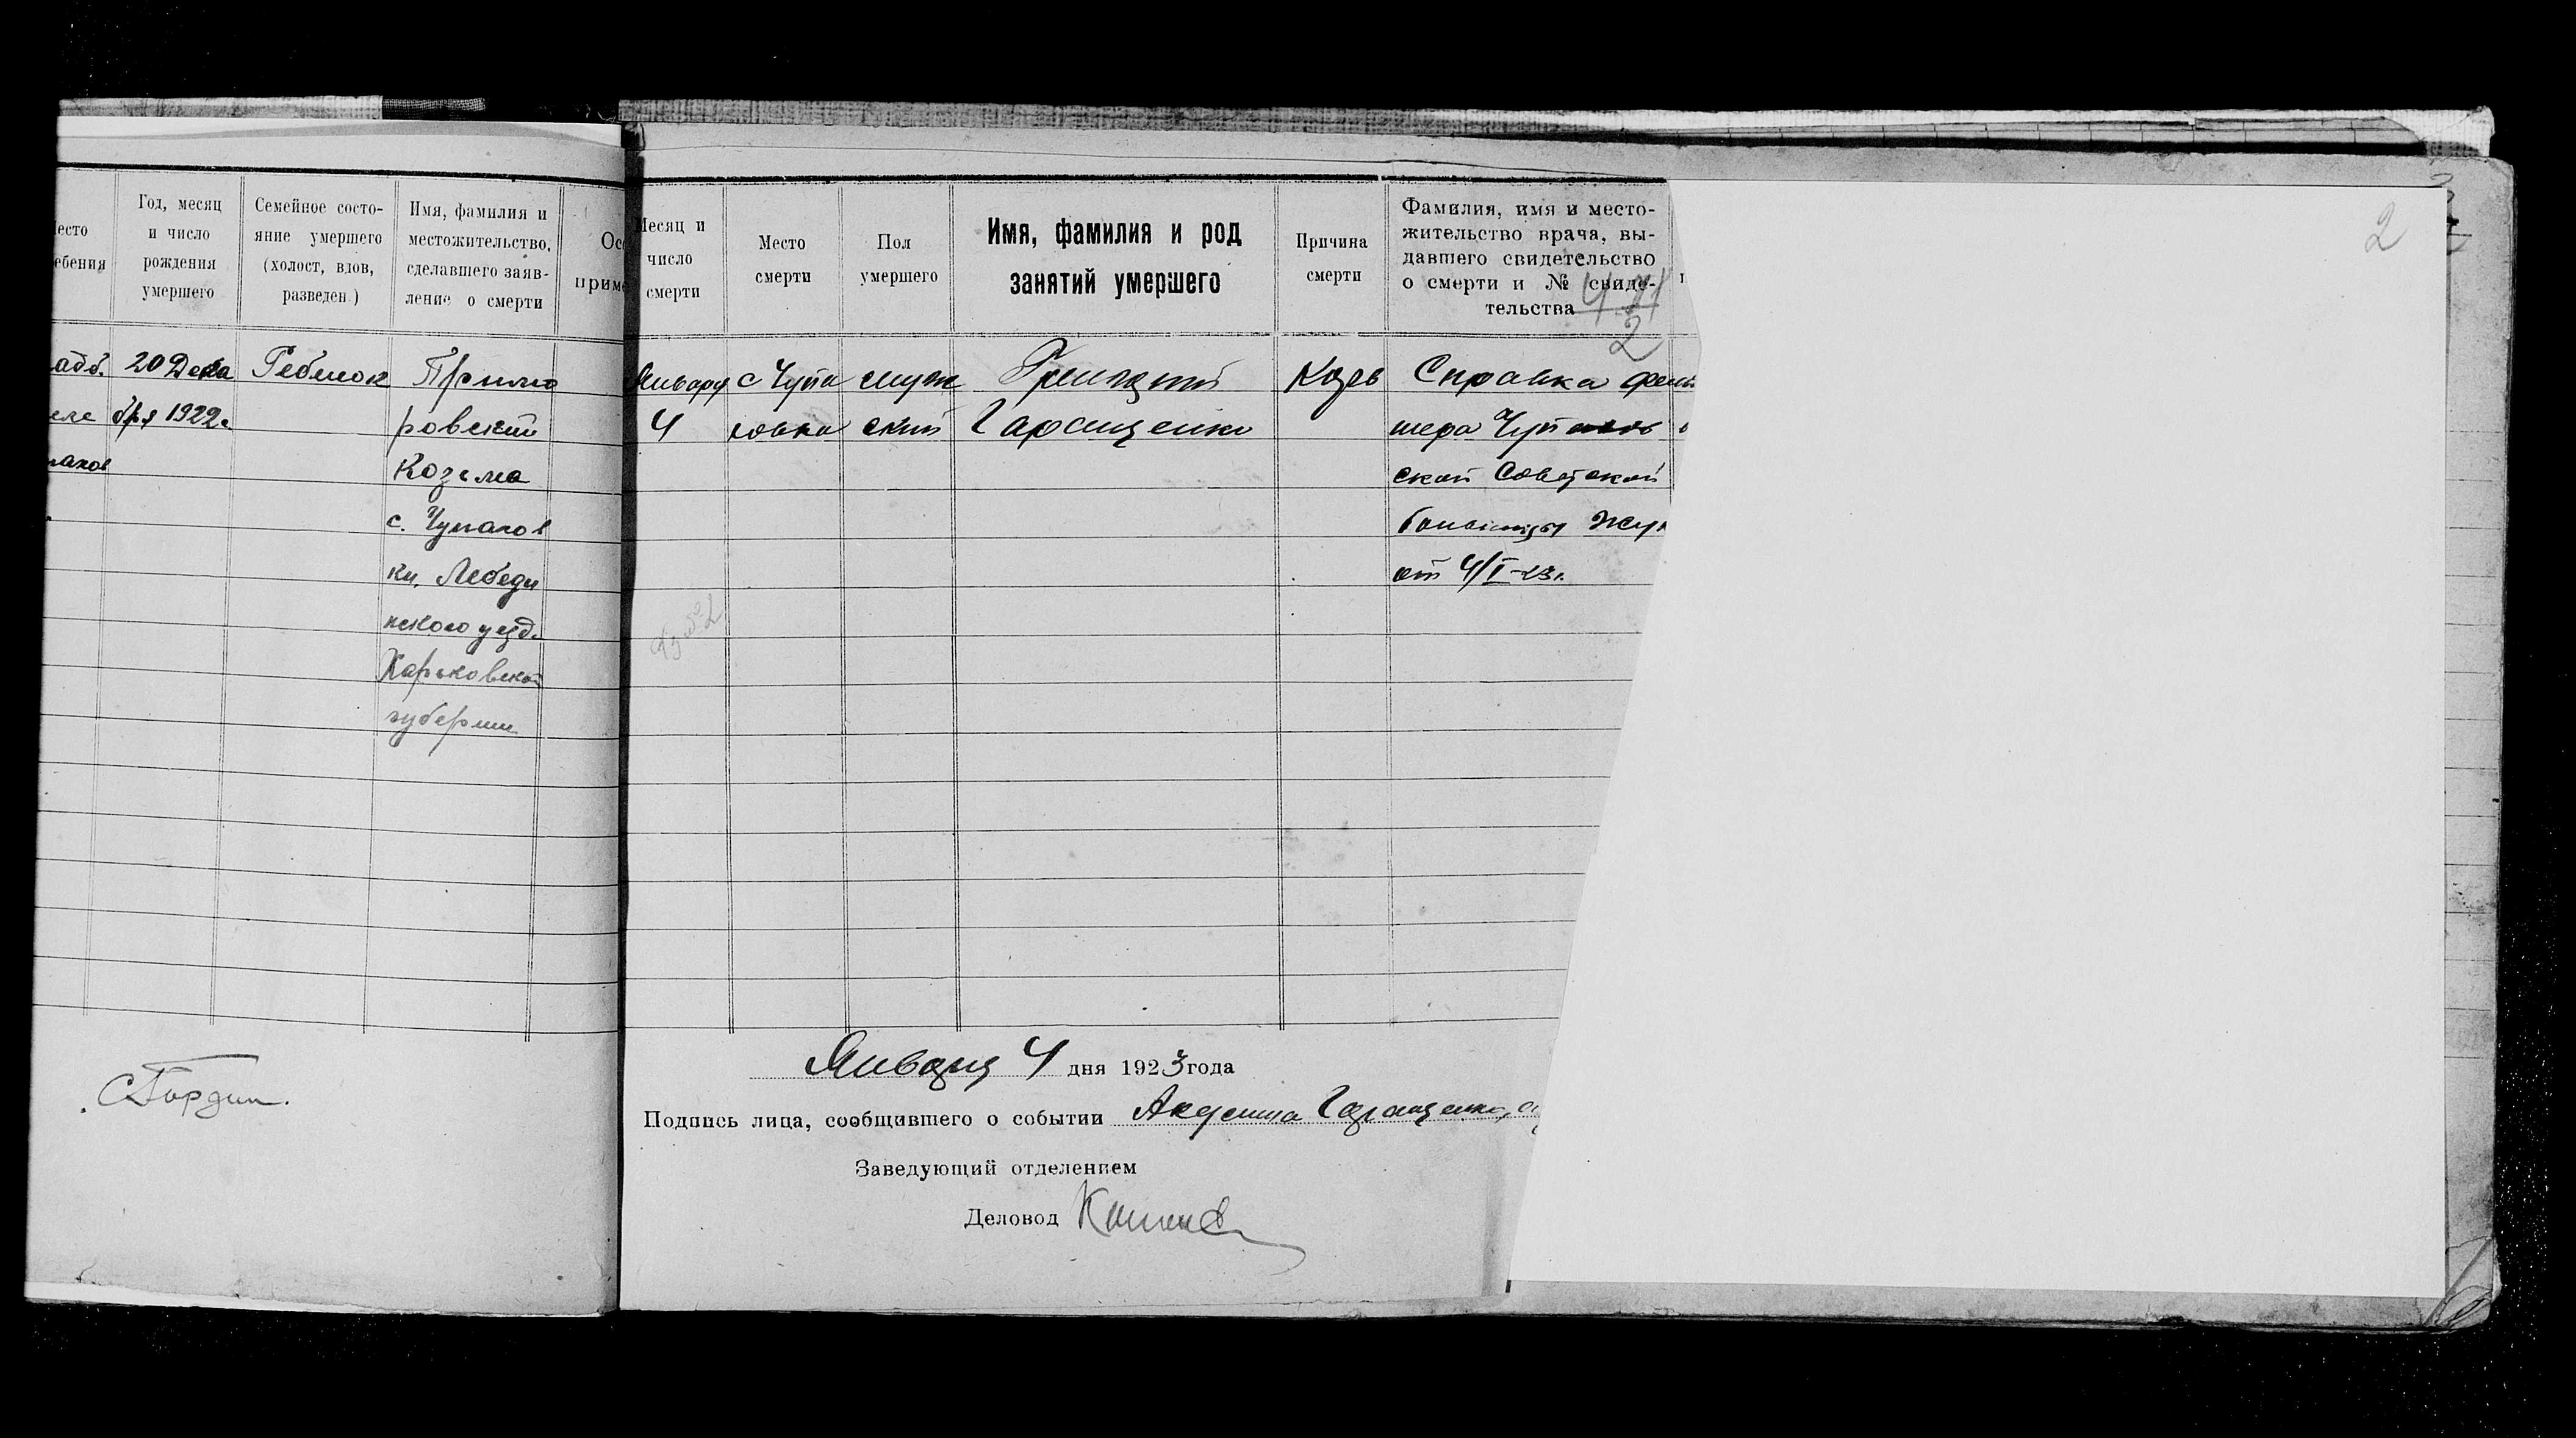 есто
ебения
Год, месяц
и число
рождения
умершего
Семейное состо-
яние умершего
(холост, вдов,
разведен.)
Имя, фамилия и
местожительство,
сделавшего заяв-
ление о смерти
Осо
приме
адб.
20 Дека
бря 1922г.
Ребенок
Прима
ровский
Козьма
с. Чупахов
ки, Лебеди
нского уезд.
Харьковской
губернии
Месяц и
число
смерти
Место
смерти
Пол
умершего
Имя, фамилия и род
занятий умершего
Причина
смерти
Фамилия, имя и место-
жительство врача, вы-
давшего свидетельство
о смерти и № свиде-
тельства
2
2
Января
4
с Чупа
ховка
муж
ской
Григорий
Гаращенко
Корь
Справка фель
шера Чупахов
ской Советской
больницы
от 4/I-23г.
Января 4 дня 1923 года
Подпись лица, сообщившего о событии Акулина Гаращенко,
Заведующий отделением
Деловод